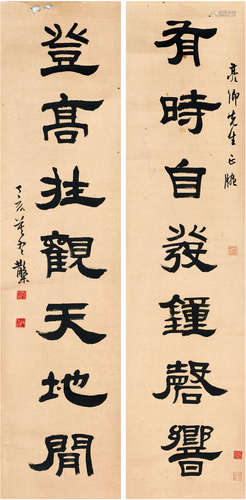 有時自發鍾磬響
亮卿先生正
登高壯觀天地間
丁亥